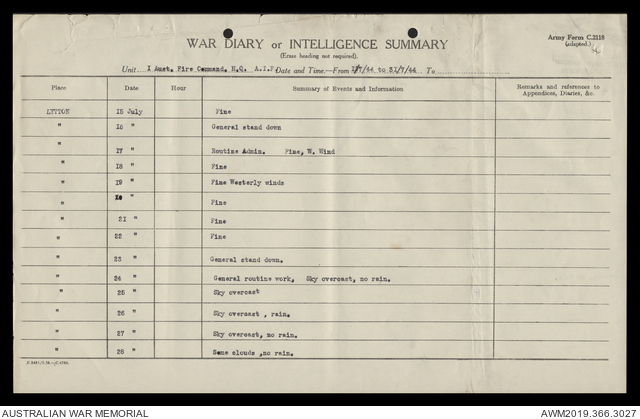 WAR DIARY or INTELLIGENCE SUMMARY
Army Form C.2118
(adapted.)
(Erase heading not required).
Unit I Aust. Fire Command. H.Q. A.I.F. Date and Time.—From 1/7/44 to 31/7/44 To
Place Date Hour Summary of Events and Information Remarks and references to Appendices, Diaries, &c.
LYTTON 15 July Fine
" 16 " General stand down
" 17 " Routine Admin. Fine, W. Wind
" 18 " Fine
" 19 " Fine Westerly winds
" 20 " Fine
" 21 " Fine
" 22 " Fine
" 23 " General stand down.
" 24 " General routine work, Sky overcast, no rain.
" 25 " Sky overcast
" 26 " Sky overcast , rain.
" 27 " Sky overcast, no rain.
" 28 " Some clouds ,no rain.
AUSTRALIAN WAR MEMORIAL AWM2019.366.3027